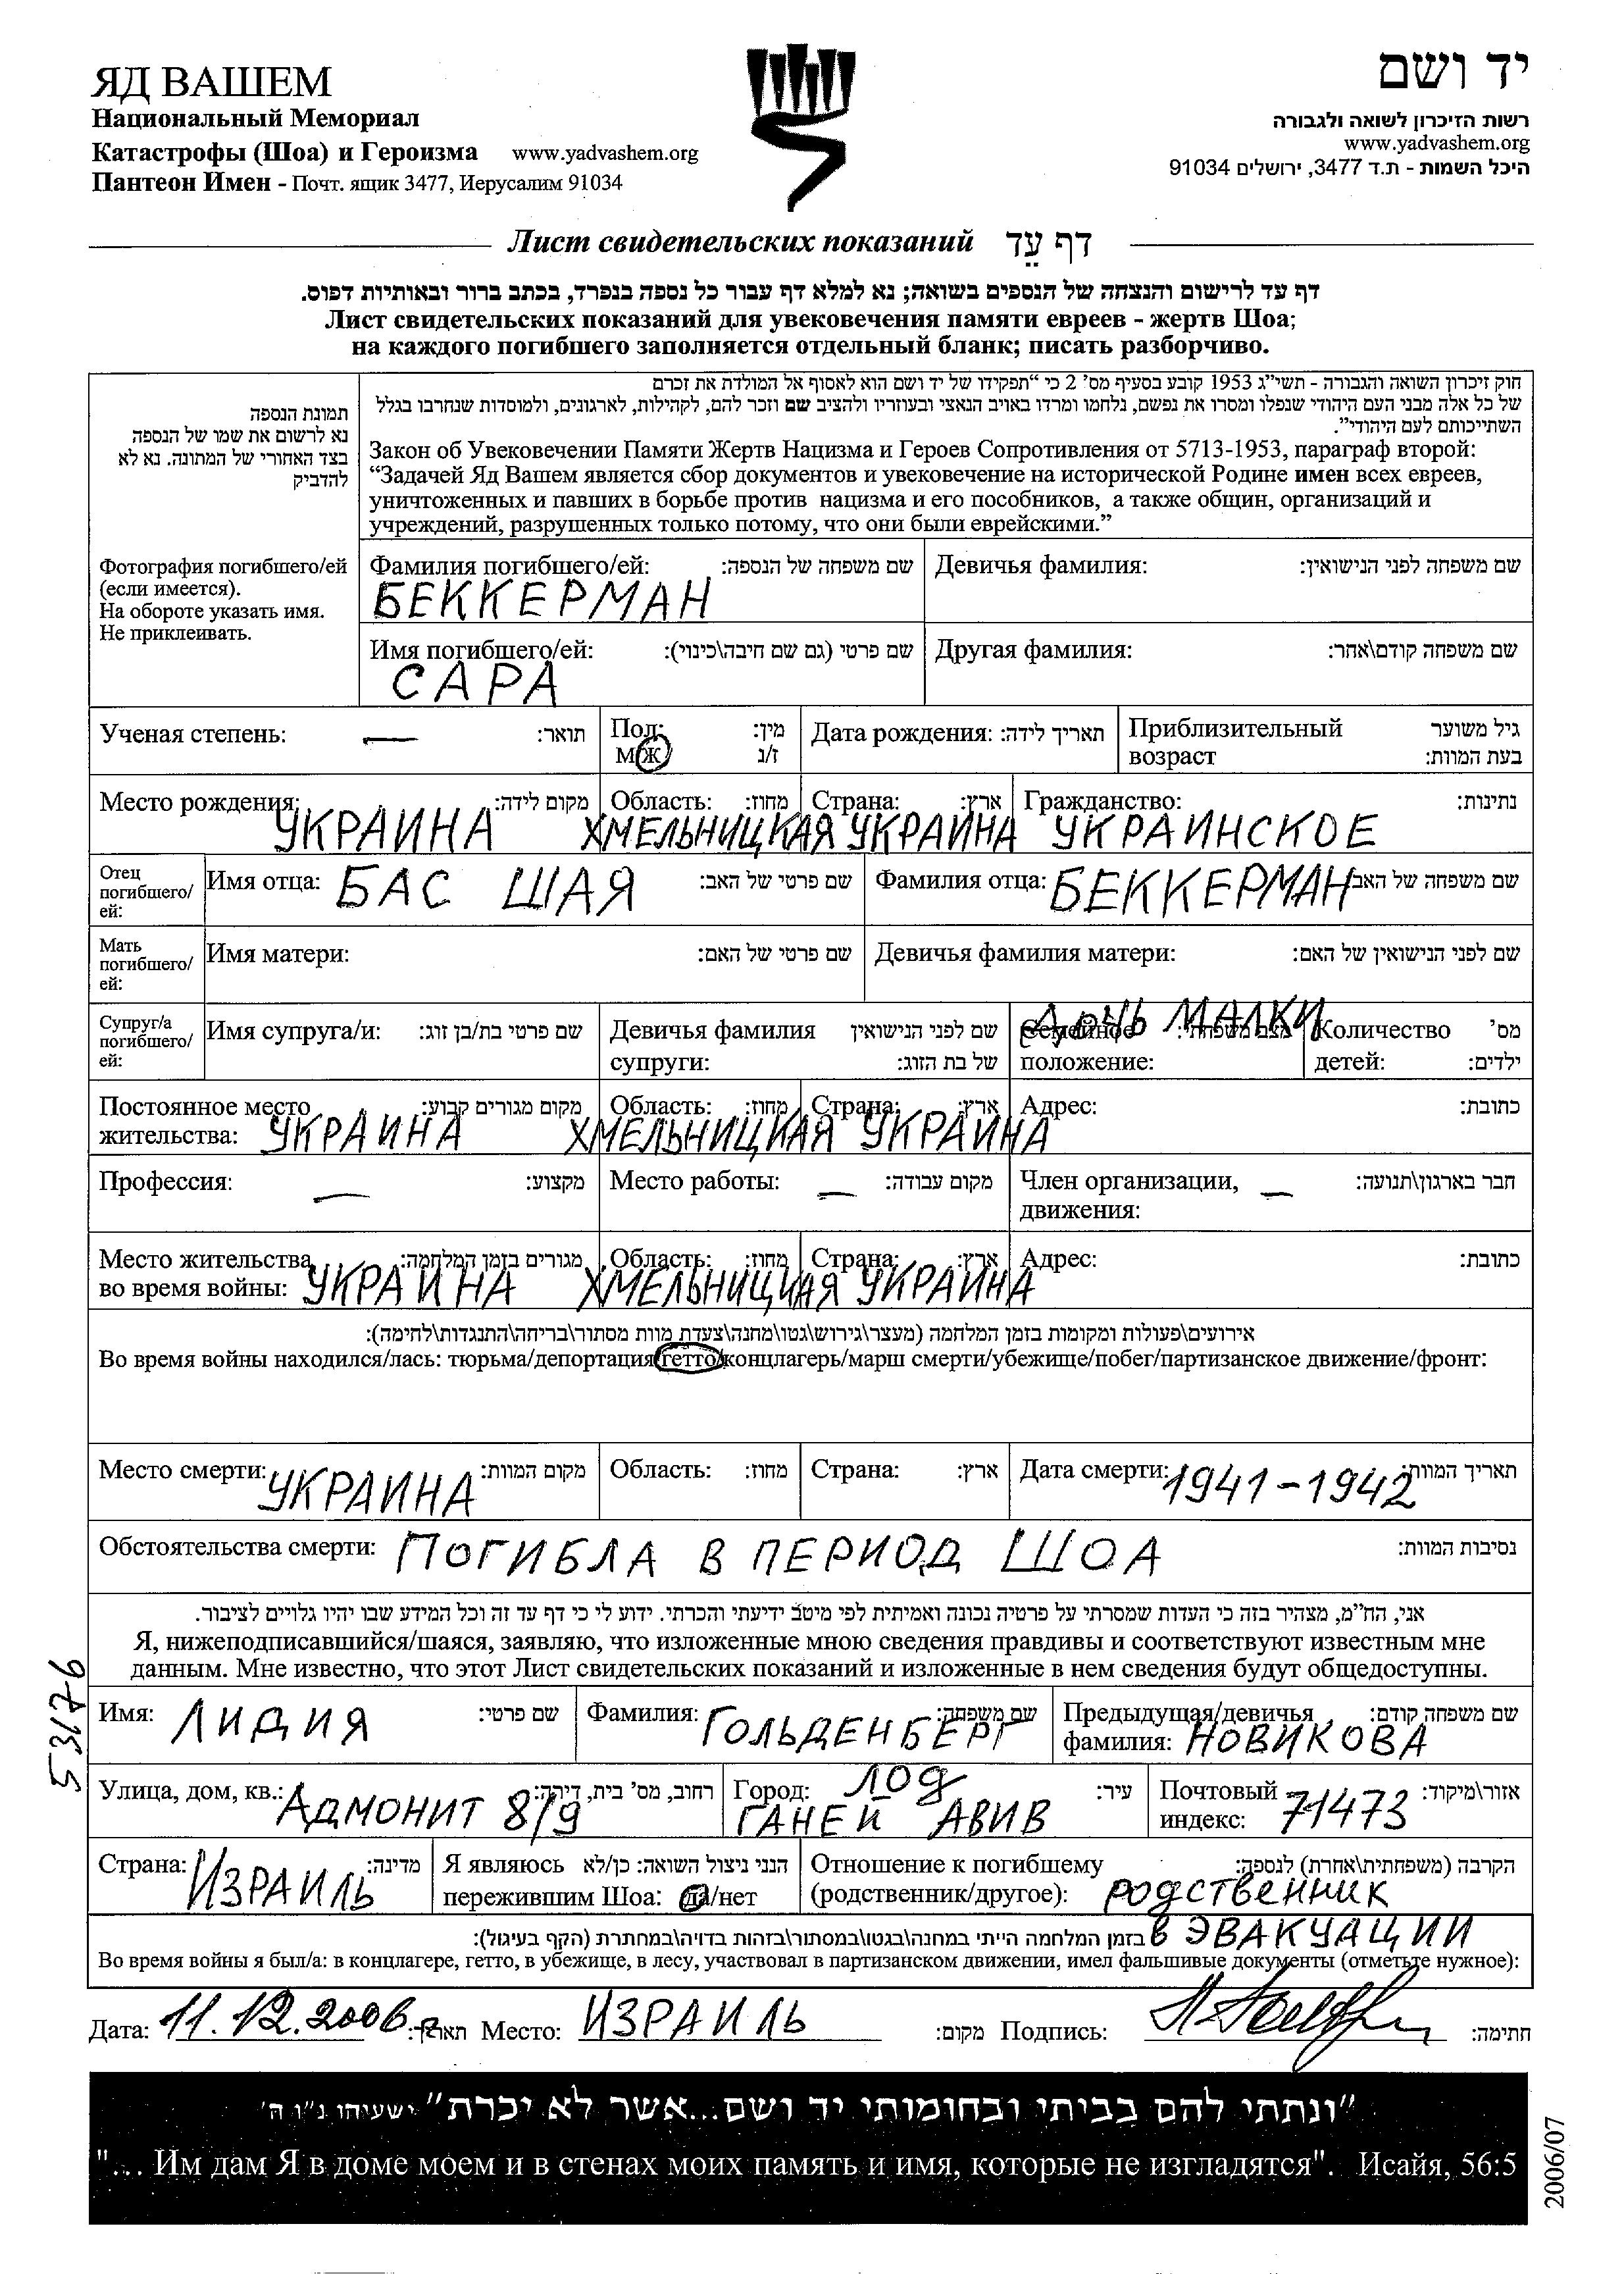 ЯД ВАШЕМ
Национальный Мемориал
Катастрофы (Шоа) и Героизма www.yadvashem.org
Пантеон Имен - Почт. ящик 3477, Иерусалим 91034
יד ושם
רשות הזיכרון לשואה ולגבורה
www.yadvashem.org
היכל השמות - ת.ד 3477, ירושלים 91034
Лист свидетельских показаний דף עֵד
דף עד לרישום והנצחה של הנספים בשואה; נא למלא דף עבור כל נספה בנפרד, בכתב ברור ובאותיות דפוס.
Лист свидетельских показаний для увековечения памяти евреев - жертв Шоа;
на каждого погибшего заполняется отдельный бланк; писать разборчиво.
תמונת הנספה
נא לרשום את שמו של הנספה
בצד האחורי של המתונה. נא לא
להדביק
Фотография погибшего/ей
(если имеется).
На обороте указать имя.
Не приклеивать.
חוק זיכרון השואה והגבורה - תשי"ג 1953 קובע בסעיף מס' 2 כי "תפקידו של יד ושם הוא לאסוף אל המולדת את זכרם
של כל אלה מבני העם היהודי שנפלו ומסרו את נפשם, נלחמו ומרדו באויב הנאצי ובעוזריו ולהציב שם וזכר להם, לקהילות, לארגונים, ולמוסדות שנחרבו בגלל
השתייכותם לעם היהודי".
Закон об Увековечении Памяти Жертв Нацизма и Героев Сопротивления от 5713-1953, параграф второй:
“Задачей Яд Вашем является сбор документов и увековечение на исторической Родине имен всех евреев,
уничтоженных и павших в борьбе против нацизма и его пособников, а также общин, организаций и
учреждений, разрушенных только потому, что они были еврейскими.”
Фамилия погибшего/ей: שם משפחה של הנספה: Девичья фамилия: שם משפחה לפני הנישואין:
БЕККЕРМАН
Имя погибшего/ей: שם פרטי (גם שם חיבה\כינוי): Другая фамилия: שם משפחה קודם\אחר:
САРА
Ученая степень: — תואר: Пол: מין: Дата рождения: תאריך לידה: Приблизительный גיל משוער
М/Ж ז/נ возраст בעת המוות:
Место рождения: מקום לידה: Область: מחוז: Страна: ארץ: Гражданство: נתינות:
УКРАИНА ХМЕЛЬНИЦКАЯ УКРАИНА УКРАИНСКОЕ
Отец погибшего/ей: Имя отца: БАС ШАЯ שם פרטי של האב: Фамилия отца: БЕККЕРМАН שם משפחה של האב:
Мать погибшего/ей: Имя матери: שם פרטי של האם: Девичья фамилия матери: שם לפני הנישואין של האם:
ДОЧЬ МАЛКИ
Супруг/а погибшего/ей: Имя супруга/и: שם פרטי בת/בן זוג: Девичья фамилия שם לפני הנישואין Семейное מצב משפחתי: Количество מס'
супруги: של בת הזוג: положение: детей: ילדים:
Постоянное место מקום מגורים קבוע: Область: מחוז: Страна: ארץ: Адрес: כתובת:
жительства: УКРАИНА ХМЕЛЬНИЦКАЯ УКРАИНА
Профессия: — מקצוע: Место работы: — מקום עבודה: Член организации, — חבר בארגון\תנועה:
движения:
Место жительства מגורים בזמן המלחמה: Область: מחוז: Страна: ארץ: Адрес: כתובת:
во время войны: УКРАИНА ХМЕЛЬНИЦКАЯ УКРАИНА
אירועים\פעולות ומקומות בזמן המלחמה (מעצר\גירוש\גטו\מחנה\צעדת מוות מסתור\בריחה\התנגדות\לחימה):
Во время войны находился/лась: тюрьма/депортация/гетто/концлагерь/марш смерти/убежище/побег/партизанское движение/фронт:
Место смерти: מקום המוות: Область: מחוז: Страна: ארץ: Дата смерти: תאריך המוות:
УКРАИНА 1941-1942
Обстоятельства смерти: ПОГИБЛА В ПЕРИОД ШОА נסיבות המוות:
אני, הח"מ, מצהיר בזה כי העדות שמסרתי על פרטיה נכונה ואמיתית לפי מיטב ידיעתי והכרתי. ידוע לי כי דף עד זה וכל המידע שבו יהיו גלויים לציבור.
Я, нижеподписавшийся/шаяся, заявляю, что изложенные мною сведения правдивы и соответствуют известным мне
данным. Мне известно, что этот Лист свидетельских показаний и изложенные в нем сведения будут общедоступны.
53176
Имя: ЛИДИЯ שם פרטי: Фамилия: ГОЛЬДЕНБЕРГ שם משפחה: Предыдущая/девичья שם משפחה קודם:
фамилия: НОВИКОВА
Улица, дом, кв.: АДМОНИТ 8/9 רחוב, מס' בית, דירה: Город: ЛОД עיר: Почтовый אזור\מיקוד:
ГАНЕЙ АВИВ индекс: 71473
Страна: ИЗРАИЛЬ מדינה: Я являюсь הנני ניצול השואה: כן/לא Отношение к погибшему הקרבה (משפחתית\אחרת) לנספה:
пережившим Шоа: да/нет (родственник/другое): РОДСТВЕННИК
בזמן המלחמה הייתי במחנה\בגטו\במסתור\בזהות בדויה\במחתרת (הקף בעיגול): В ЭВАКУАЦИИ
Во время войны я был/а: в концлагере, гетто, в убежище, в лесу, участвовал в партизанском движении, имел фальшивые документы (отметьте нужное):
Дата: 11.12.2006г תאריך: Место: ИЗРАИЛЬ מקום: Подпись: חתימה:
"ונתתי להם בביתי ובחומותי יד ושם...אשר לא יכרת" ישעיהו נ"ו ה'
"... Им дам Я в доме моем и в стенах моих память и имя, которые не изгладятся". Исайя, 56:5
2006/07